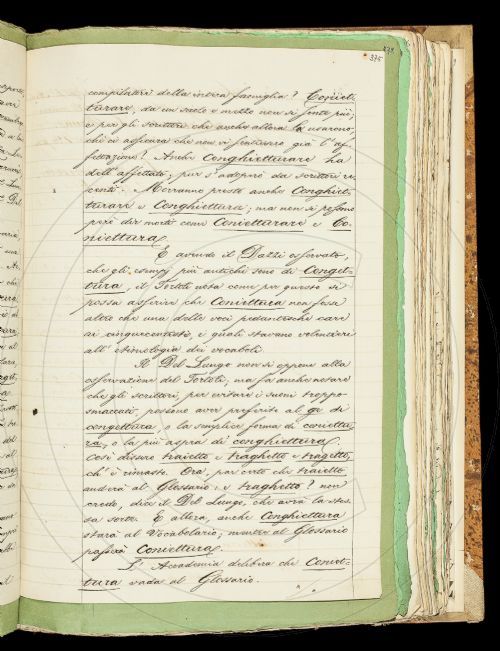 379
375
compilatori della intera famiglia? Coniet-
turare, da un secolo e mezzo non si sente più;
e per gli scrittori che anche allora la usarono,
chi ci assicura che non vi sentissero già l'af-
fettazione? Anche Conghietturare ha
dell'affettato; pur s'adopra da scrittori re-
centi. Morranno presto anche Conghiet-
turare e Conghiettura; ma non si possono
però dir morti come Conietturare e Co-
niettura.
E avendo il Dazzi osservato,
che gli esempj più antichi sono di Conget-
tura, il Tortoli nota come per questo si
possa asserire che Coniettura non fosse
altro che una delle voci pedantesche care
ai cinquecentisti, i quali stavano volentieri
all'etimologia dei vocaboli.
Il Del Lungo non si oppone alla
osservazione del Tortoli; ma fa anche notare
che gli scrittori, per evitare i suoni troppo
smaccati, possono aver preferito al ge di
congettura, o la semplice forma di coniettu-
ra, o la più aspra di conghiettura.
Così dissero traietto e traghetto e tragetto,
ch'è rimasto. Ora, par certo che traietto
andrà al Glossario; e traghetto? non
credo, dice il Del Lungo, che avrà la stes-
sa sorte. E allora, anche Conghiettura
starà al Vocabolario; mentre al Glossario
passerà Coniettura.
L'Accademia delibera che Coniet-
tura vada al Glossario.